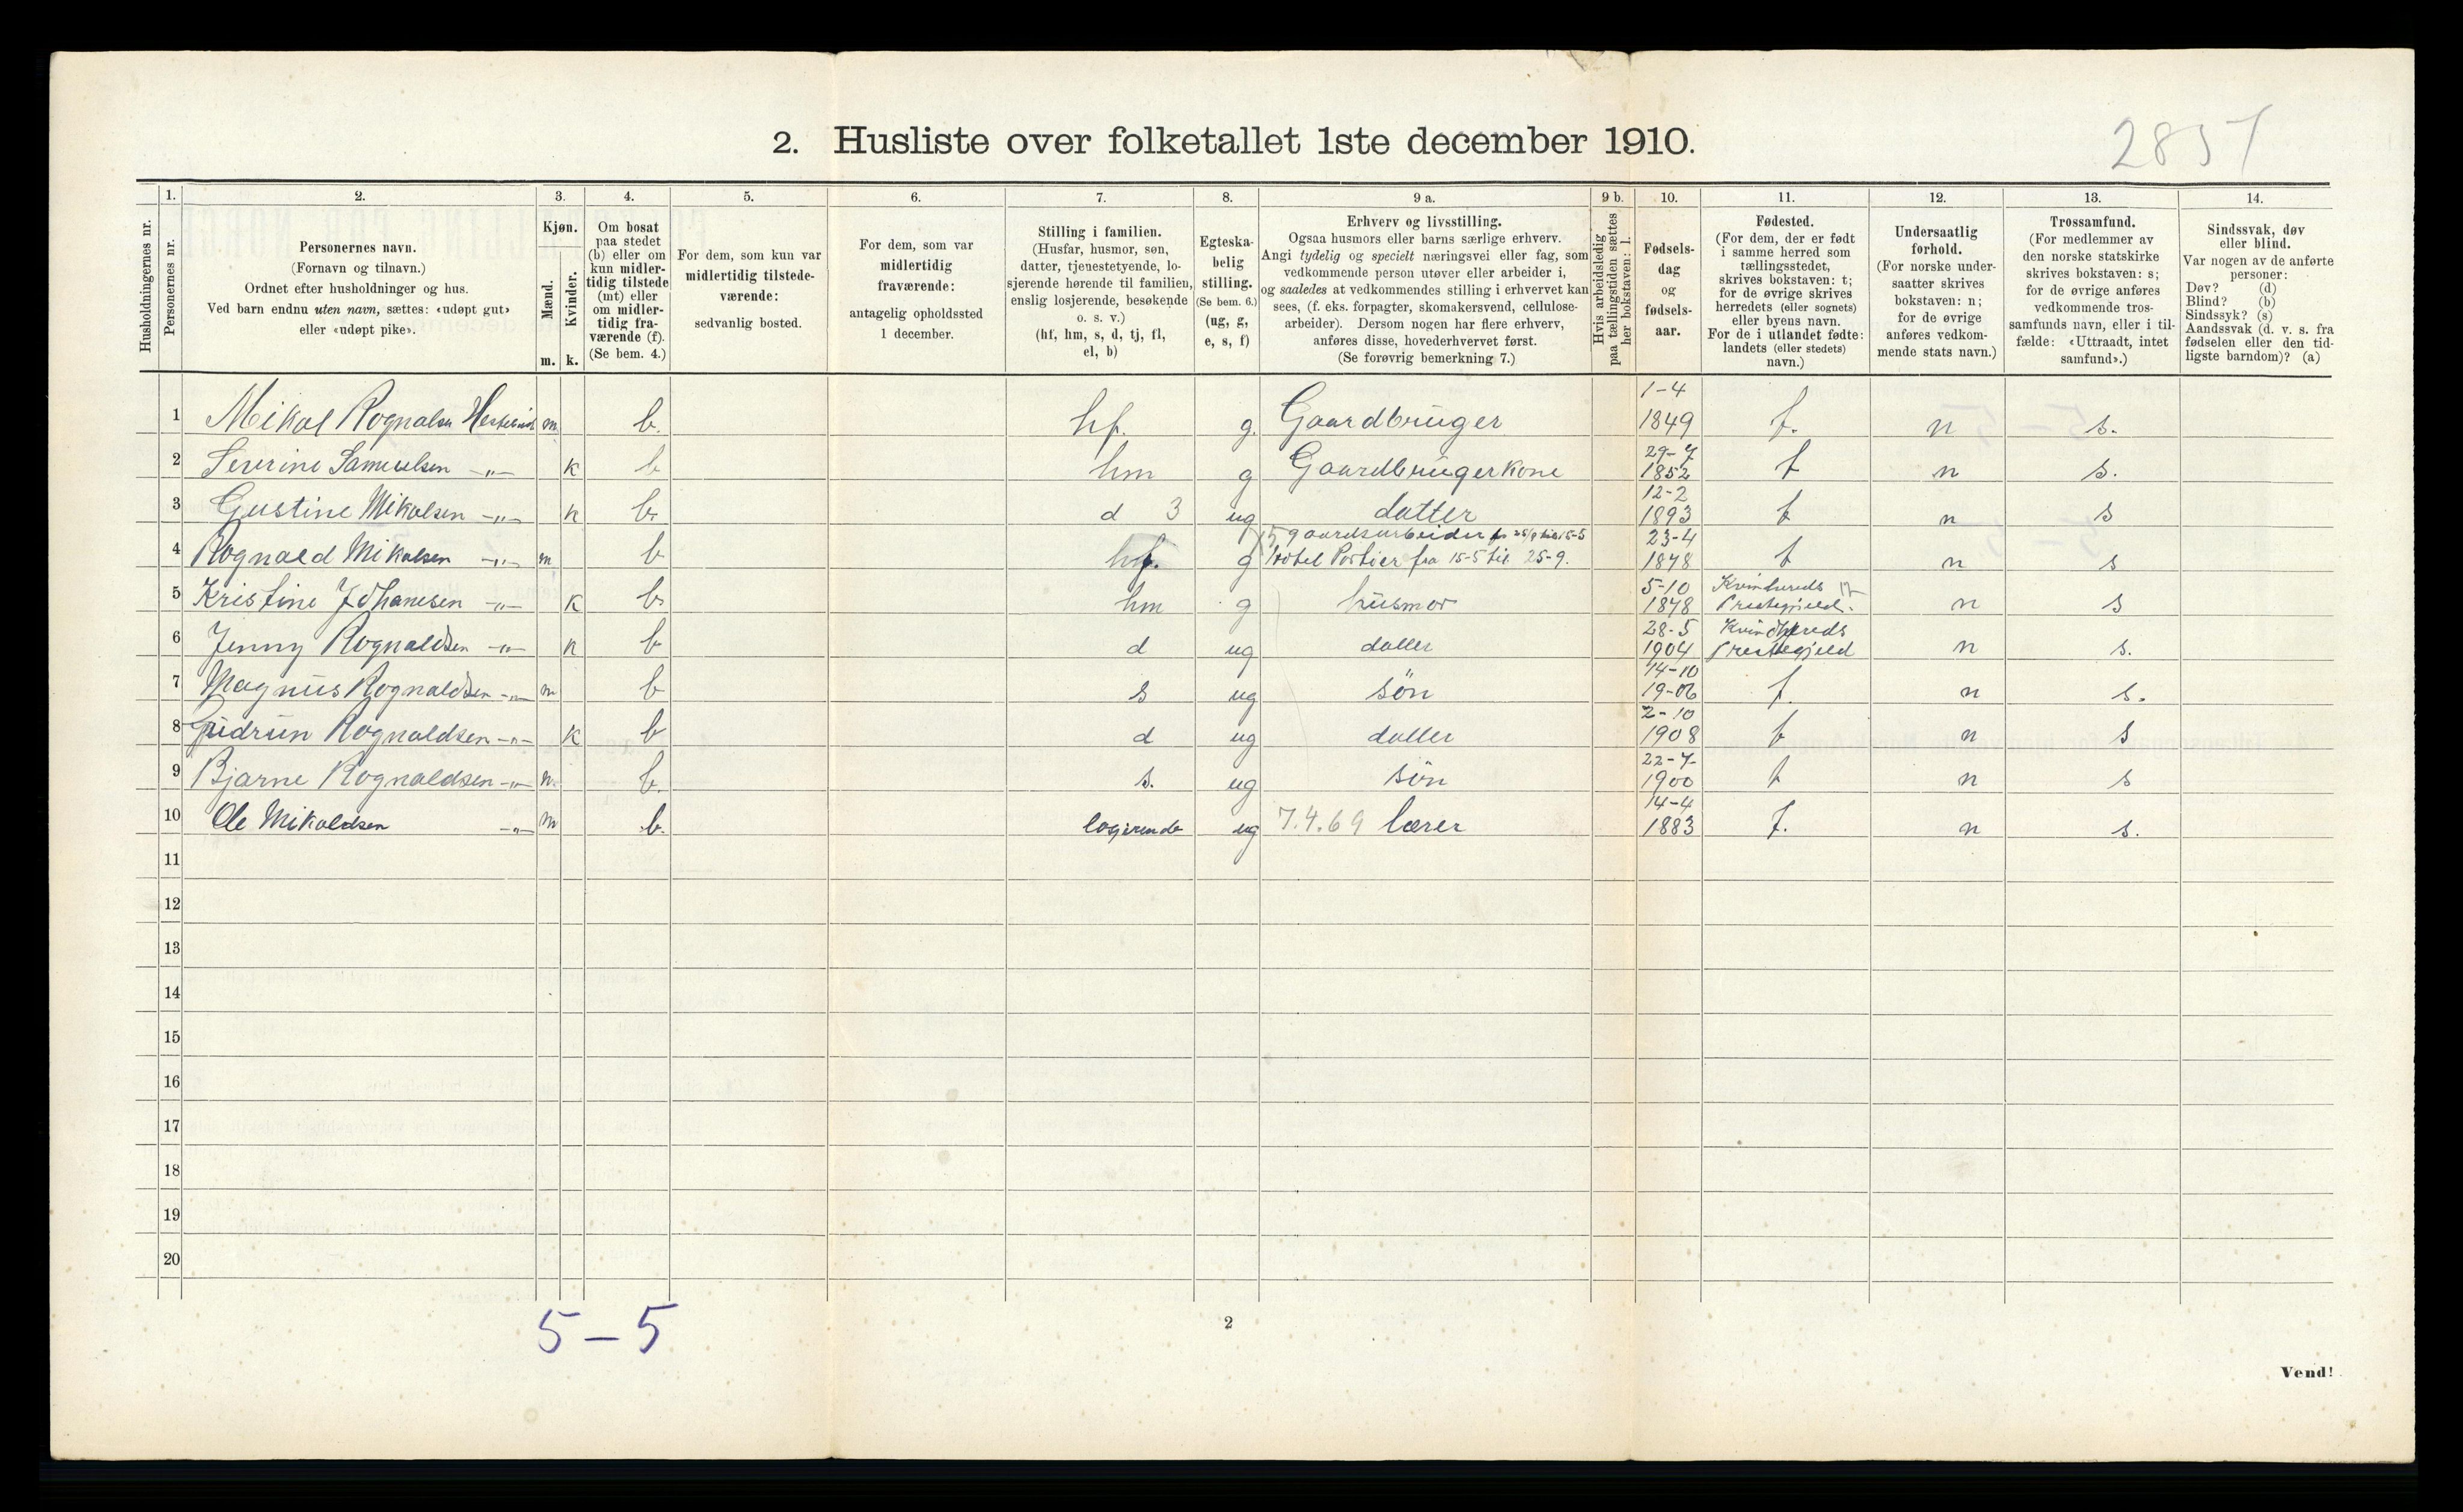 2. Husliste over folketallet 1ste december 1910.
1. 2. 3. 4. 5. 6. 7. 8. 9 a. 9 b. 10. 11. 12. 13. 14.
Husholdningernes nr.
Personernes nr.
Personernes navn.
(Fornavn og tilnavn.)
Ordnet efter husholdninger og hus.
Ved barn endnu uten navn, sættes: «udøpt gut»
eller «udøpt pike».
Kjøn.
Mænd.
Kvinder.
m. k.
Om bosat
paa stedet
(b) eller om
kun midler-
tidig tilstede
(mt) eller
om midler-
tidig fra-
værende (f).
(Se bem. 4.)
For dem, som kun var
midlertidig tilstede-
værende:
sedvanlig bosted.
For dem, som var
midlertidig
fraværende:
antagelig opholdssted
1 december.
Stilling i familien.
(Husfar, husmor, søn,
datter, tjenestetyende, lo-
sjerende hørende til familien,
enslig losjerende, besøkende
o. s. v.)
(hf, hm, s, d, tj, fl,
el, b)
Egteska-
belig
stilling.
(Se bem. 6.)
(ug, g,
e, s, f)
Erhverv og livsstilling.
Ogsaa husmors eller barns særlige erhverv.
Angi tydelig og specielt næringsvei eller fag, som
vedkommende person utøver eller arbeider i,
og saaledes at vedkommendes stilling i erhvervet kan
sees, (f. eks. forpagter, skomakersvend, cellulose-
arbeider). Dersom nogen har flere erhverv,
anføres disse, hovederhvervet først.
(Se forøvrig bemerkning 7.)
Hvis arbeidsledig
paa tællingstiden sættes
her bokstaven: l.
Fødsels-
dag
og
fødsels-
aar.
Fødested.
(For dem, der er født
i samme herred som
tællingsstedet,
skrives bokstaven: t;
for de øvrige skrives
herredets (eller sognets)
eller byens navn.
For de i utlandet fødte:
landets (eller stedets)
navn.)
Undersaatlig
forhold.
(For norske under-
saatter skrives
bokstaven: n;
for de øvrige
anføres vedkom-
mende stats navn.)
Trossamfund.
(For medlemmer av
den norske statskirke
skrives bokstaven: s;
for de øvrige anføres
vedkommende tros-
samfunds navn, eller i til-
fælde: «Uttraadt, intet
samfund».)
Sindssvak, døv
eller blind.
Var nogen av de anførte
personer:
Døv? (d)
Blind? (b)
Sindssyk? (s)
Aandssvak (d. v. s. fra
fødselen eller den tid-
ligste barndom)? (a)
1 Mikal Rognalsen m b. hf. g. Gaardbruger 1-4 1849 t. n s.
2 Severine Samuelsen -"- k b hm g Gaardbrugerkone 29-7 1852 t n s.
3 Gustine Mikalsen -"- k b. d 3 ug datter 12-2 1893 t n s
4 Rognald Mikalsen -"- m b hf. g gaardsarbeider fr 25/9 til 15-5
Hotel Portier fra 15-5 til 25-9. 23-4 1878 t n s
5 Kristine Johanesen -"- k b. hm g husmor 5-10 1878 Kvinhereds Prestegjeld. n s
6 Jenny Rognaldsen -"- k b d ug datter 28-5 1904 Kvindhereds Prestegjeld n s.
7 Magnus Rognaldsen -"- m b s ug søn 14-10 19-06 t. n s.
8 Gudrun Rognaldsen -"- k b d ug datter 2-10 1908 t n s
9 Bjarne Rognaldsen -"- m. b. s. ug søn 22-7- 1900 t n s
10 Ole Mikaldsen -"- m b. losjerende ug 7.4.69 lærer 14-4 1883 t. n s.
11
12
13
14
15
16
17
18
19
20
5-5
2
Vend!